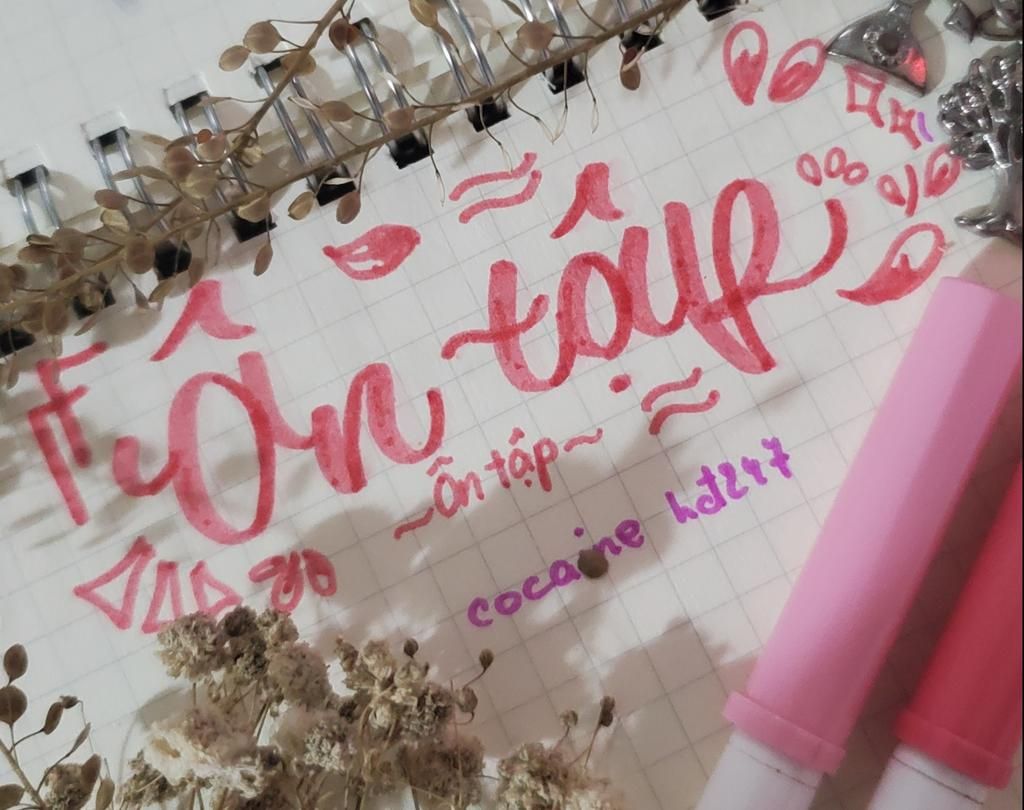 Ôn tập
~Ôn tập~
cocaine hđt247